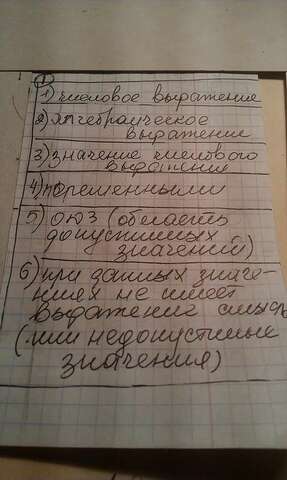 1
1) числовое выражение
2) алгебраическое
выражение
3) значение числового
выражения
4) переменными
5) ОДЗ (область
допустимых
значений)
6) при данных значе-
ниях не имеет
выражение смысл
(или недопустимые
значения)